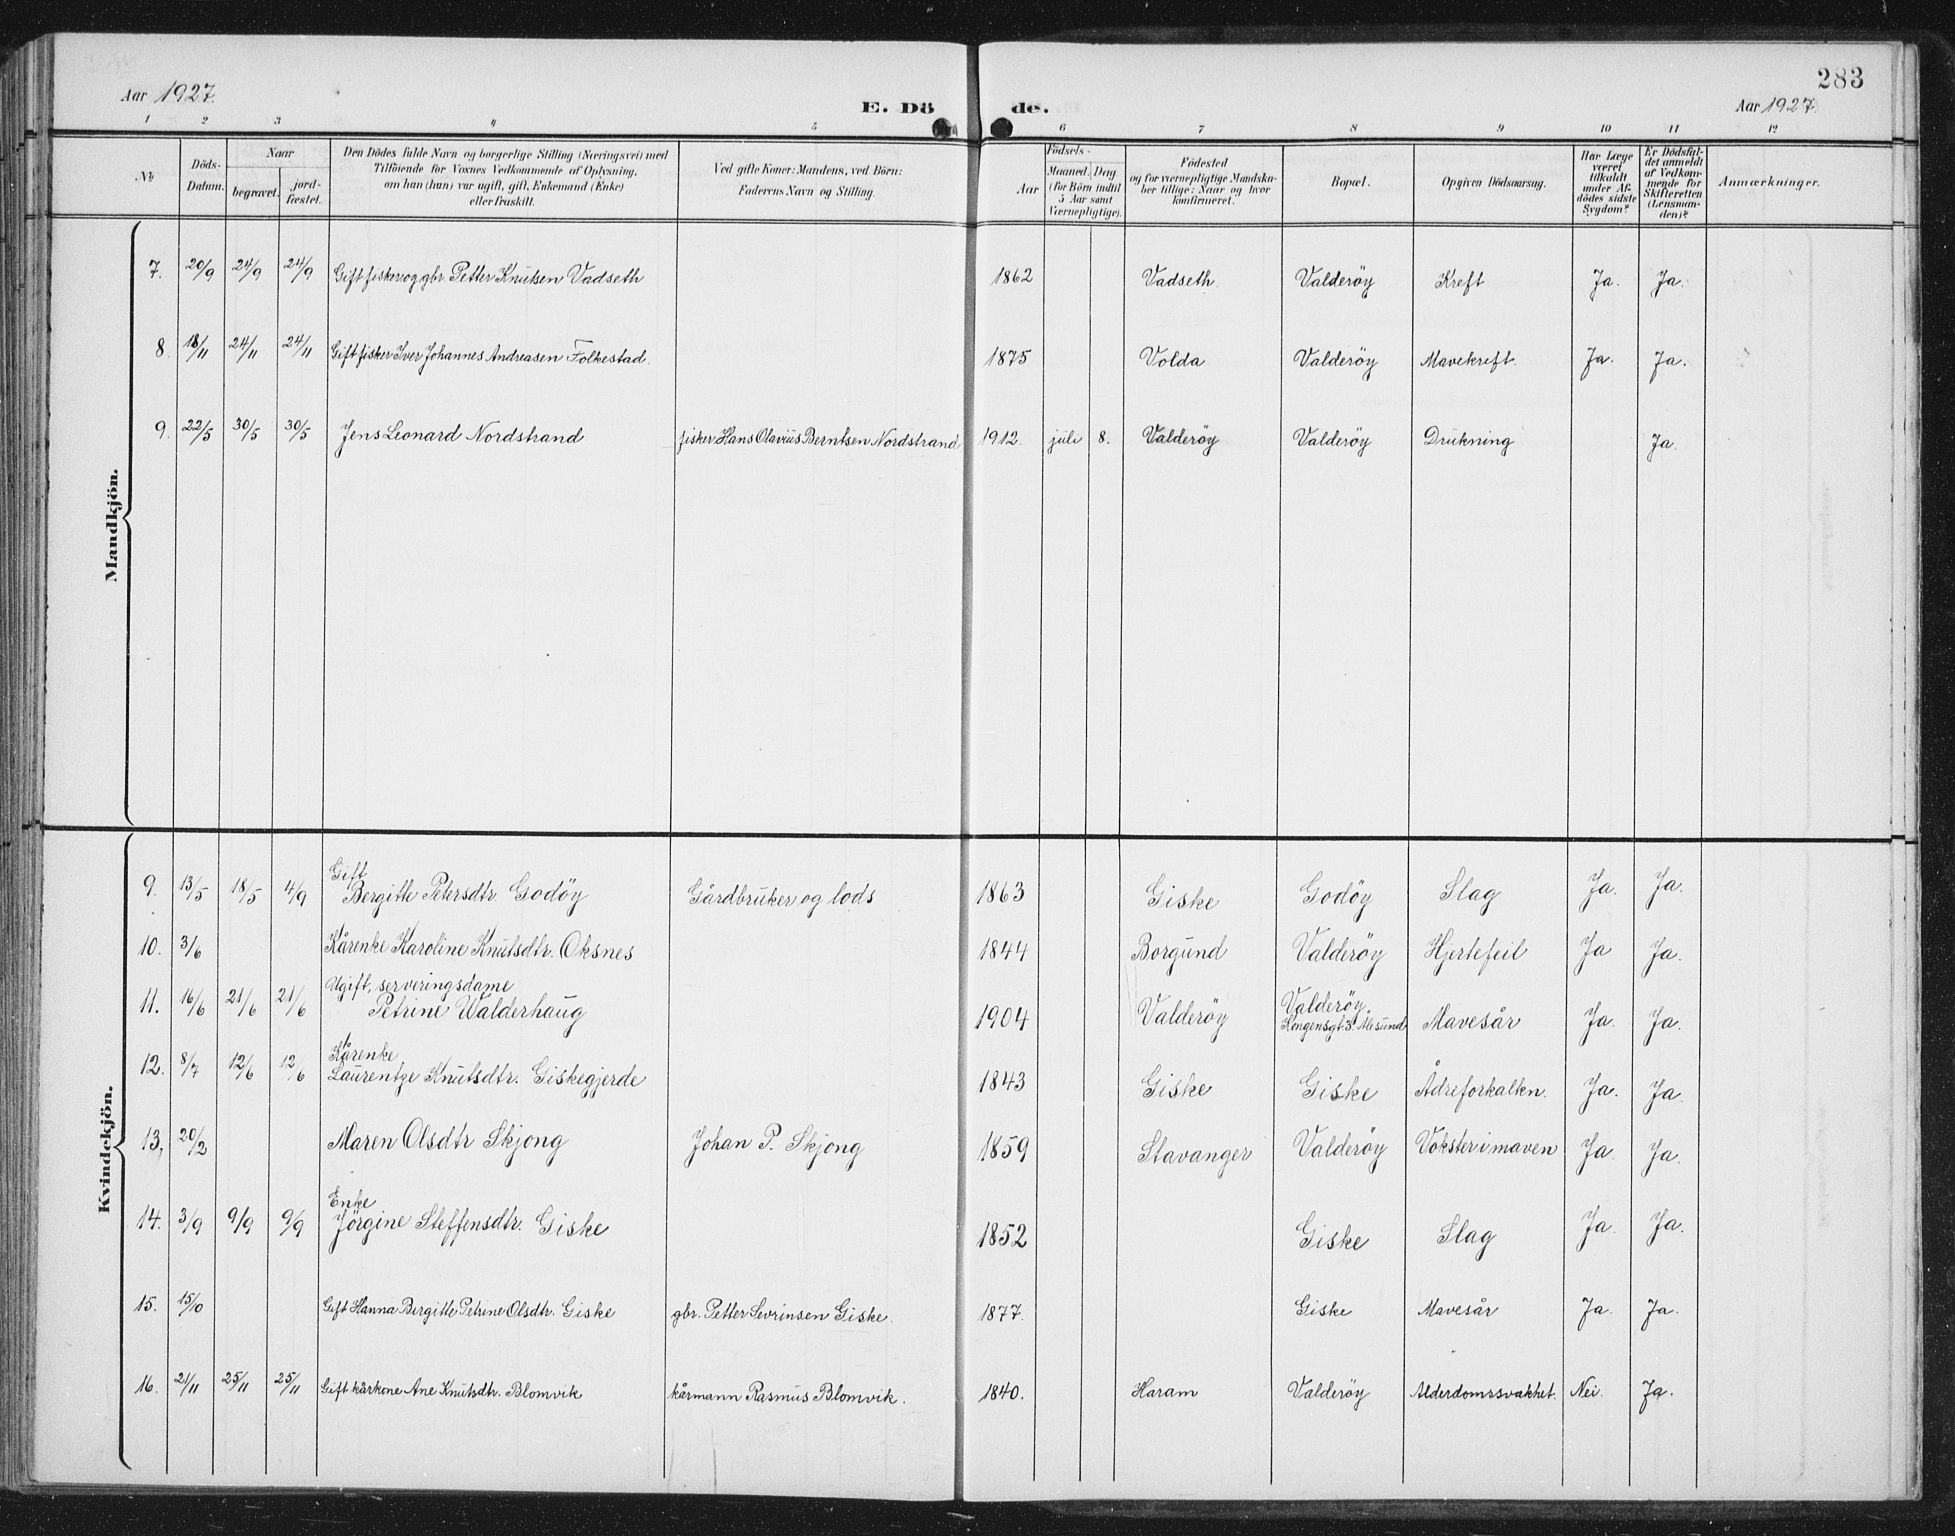 Aar 1927.
E. Dö de.
283
Aar 1927.
1 2 3 4 5 6 7 8 9 10 11 12
№
Döds-
Datum.
Naar
begravet.
jord-
fæstet.
Den Dödes fulde Navn og borgerlige Stilling (Næringsvei) med
Tilföiende for Voxnes Vedkommende af Oplysning,
om han (hun) var ugift, gift, Enkemand (Enke)
eller fraskilt.
Ved gifte Koner: Mandens, ved Börn:
Faderens Navn og Stilling.
Födsels-
Aar
Maaned. Dag
(for Börn indtil
5 Aar samt
Værnepligtige).
Födested
og for værnepligtige Mandska-
ber tillige: Naar og hvor
konfirmeret.
Bopæl.
Opgiven Dödsaarsag.
Har Læge
været
tilkaldt
under Af-
dödes sidste
Sygdom?
Er Dödsfal-
det anmeldt
af Vedkom-
mende for
Skifteretten
(Lensman-
den)?
Anmærkninger.
Mandkjön.
7. 20/9 24/9 24/9 Gift fisker og gbr. Petter Knutsen Vadseth 1862 Vadseth. Valderöy Kreft Ja. Ja.
8. 18/11 24/11 24/11 Gift fisker Iver Johannes Andreasen Folkestad. 1875 Volda Valderöy Mavekreft. Ja. Ja.
9. 22/5 30/5 30/5 Jens Leonard Nordstrand fisker Hans Olavius Berntsen Nordstrand 1912. juli 8. Valderöy Valderöy Drukning Ja.
Kvindekjön.
Gift
9. 13/5 18/5 4/9 Bergitte Petersdtr. Godöy Gårdbruker og lods 1863 Giske Godöy Slag Ja. Ja.
10. 3/6 Kårenke Karoline Knutsdtr. Oksnes 1844 Borgund Valderöy Hjertefeil Ja Ja.
Ugift, serveringsdame
11. 16/6 21/6 21/6 Petrine Walderhaug 1904 Valderöy Valderöy Kongensgt. 3. Ålesund Mavesår Ja. Ja.
Kårenke
12. 8/7 12/6 12/6 Laurentze Knutsdtr. Giskegjerde 1843 Giske Giske Ådreforkalkn. Ja. Ja.
13. 20/2 Maren Olsdtr Skjong Johan P. Skjong 1859 Stavanger Valderöy Vokster i maven Ja. Ja.
Enke
14. 3/9 9/9 9/9 Jörgine Steffensdtr. Giske 1852 Giske Slag Ja. Ja.
15. 15/10 Gift Hanna Bergitte Petrine Olsdtr. Giske gbr. Petter Sevrinsen Giske. 1877. Giske Mavesår Ja. Ja.
16. 21/11 25/11 25/11 Gift kårkone Ane Knutsdtr. Blomvik kårmann Rasmus Blomvik. 1840. Haram Valderöy Alderdomssvakhet. Nei. Ja.